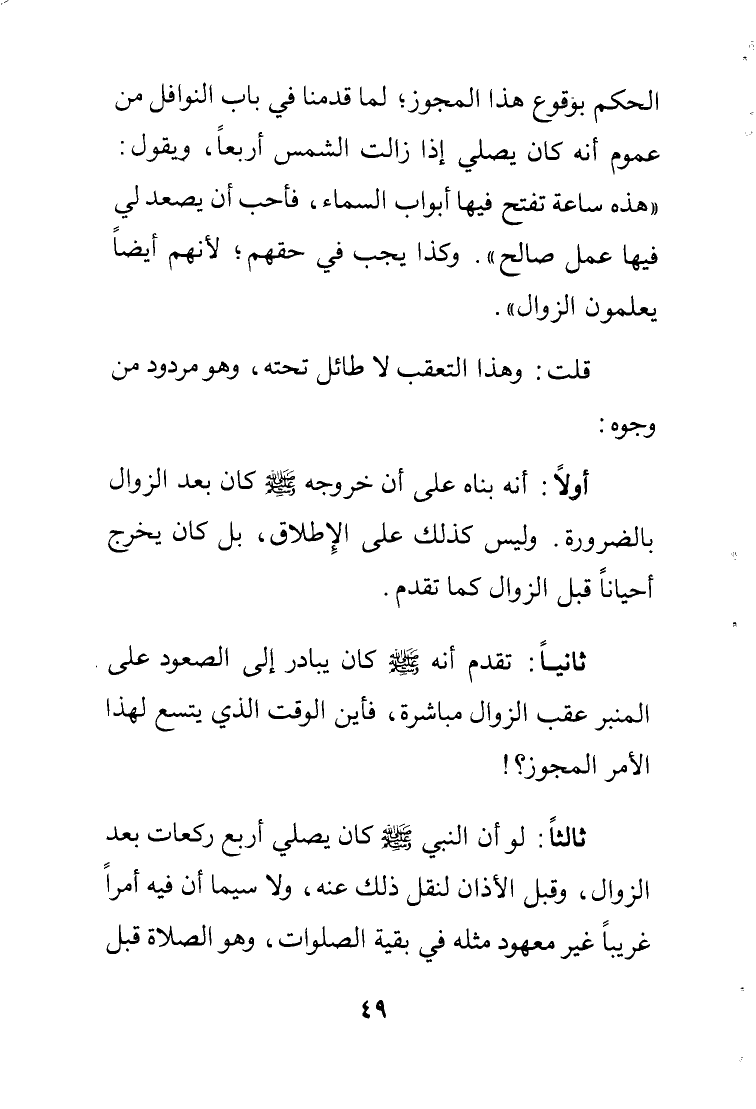 الحكم بوقوع هذا المجوز؛ لما قدمنا في باب النوافل من
عموم أنه كان يصلي إذا زالت الشمس أربعاً، ويقول:
«هذه ساعة تفتح فيها أبواب السماء، فأحب أن يصعد لي
فيها عمل صالح». وكذا يجب في حقهم؛ لأنهم أيضاً
يعلمون الزوال».
قلت: وهذا التعقب لا طائل تحته، وهو مردود من
وجوه:
أولاً: أنه بناه على أن خروجه ﷺ كان بعد الزوال
بالضرورة. وليس كذلك على الإطلاق، بل كان يخرج
أحياناً قبل الزوال كما تقدم.
ثانيـاً: تقدم أنه ﷺ كان يبادر إلى الصعود على
المنبر عقب الزوال مباشرة، فأين الوقت الذي يتسع لهذا
الأمر المجوز؟!
ثالثاً: لو أن النبي ﷺ كان يصلي أربع ركعات بعد
الزوال، وقبل الأذان لنقل ذلك عنه، ولا سيما أن فيه أمراً
غريباً غير معهود مثله في بقية الصلوات، وهو الصلاة قبل
٤٩